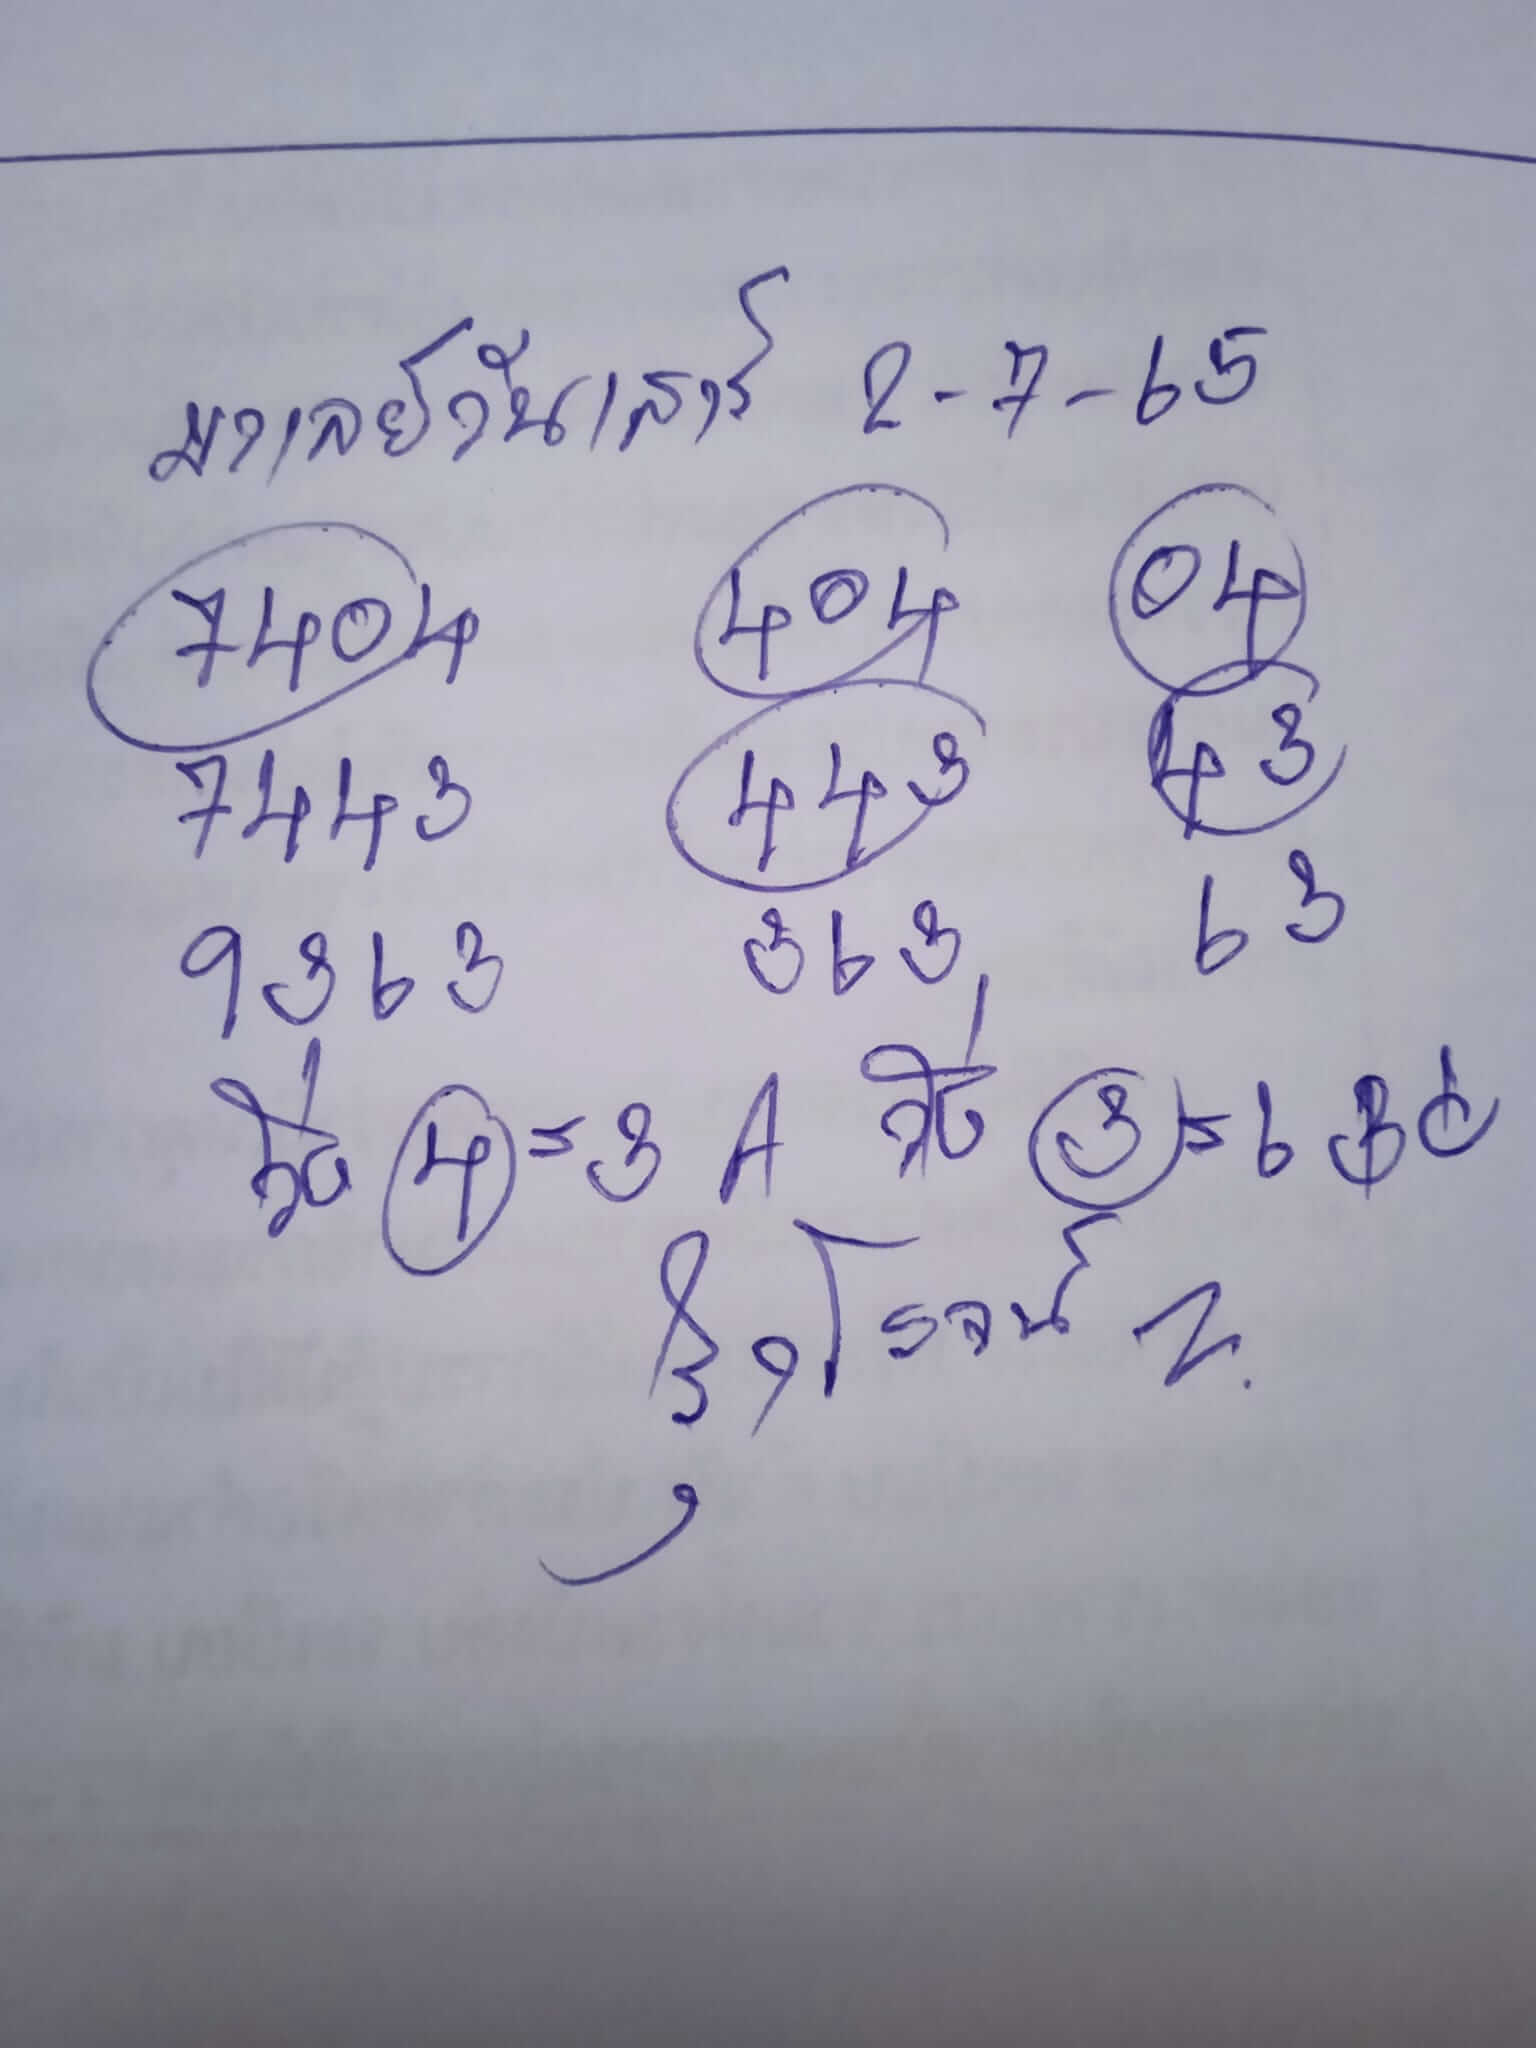 มาเลย์วันเสาร์ 2-7-65
7404 404 04
7443 443 43
9363 363 63
วิ่ง 4 = 3 วิ่ง 3 = 6
โรจน์